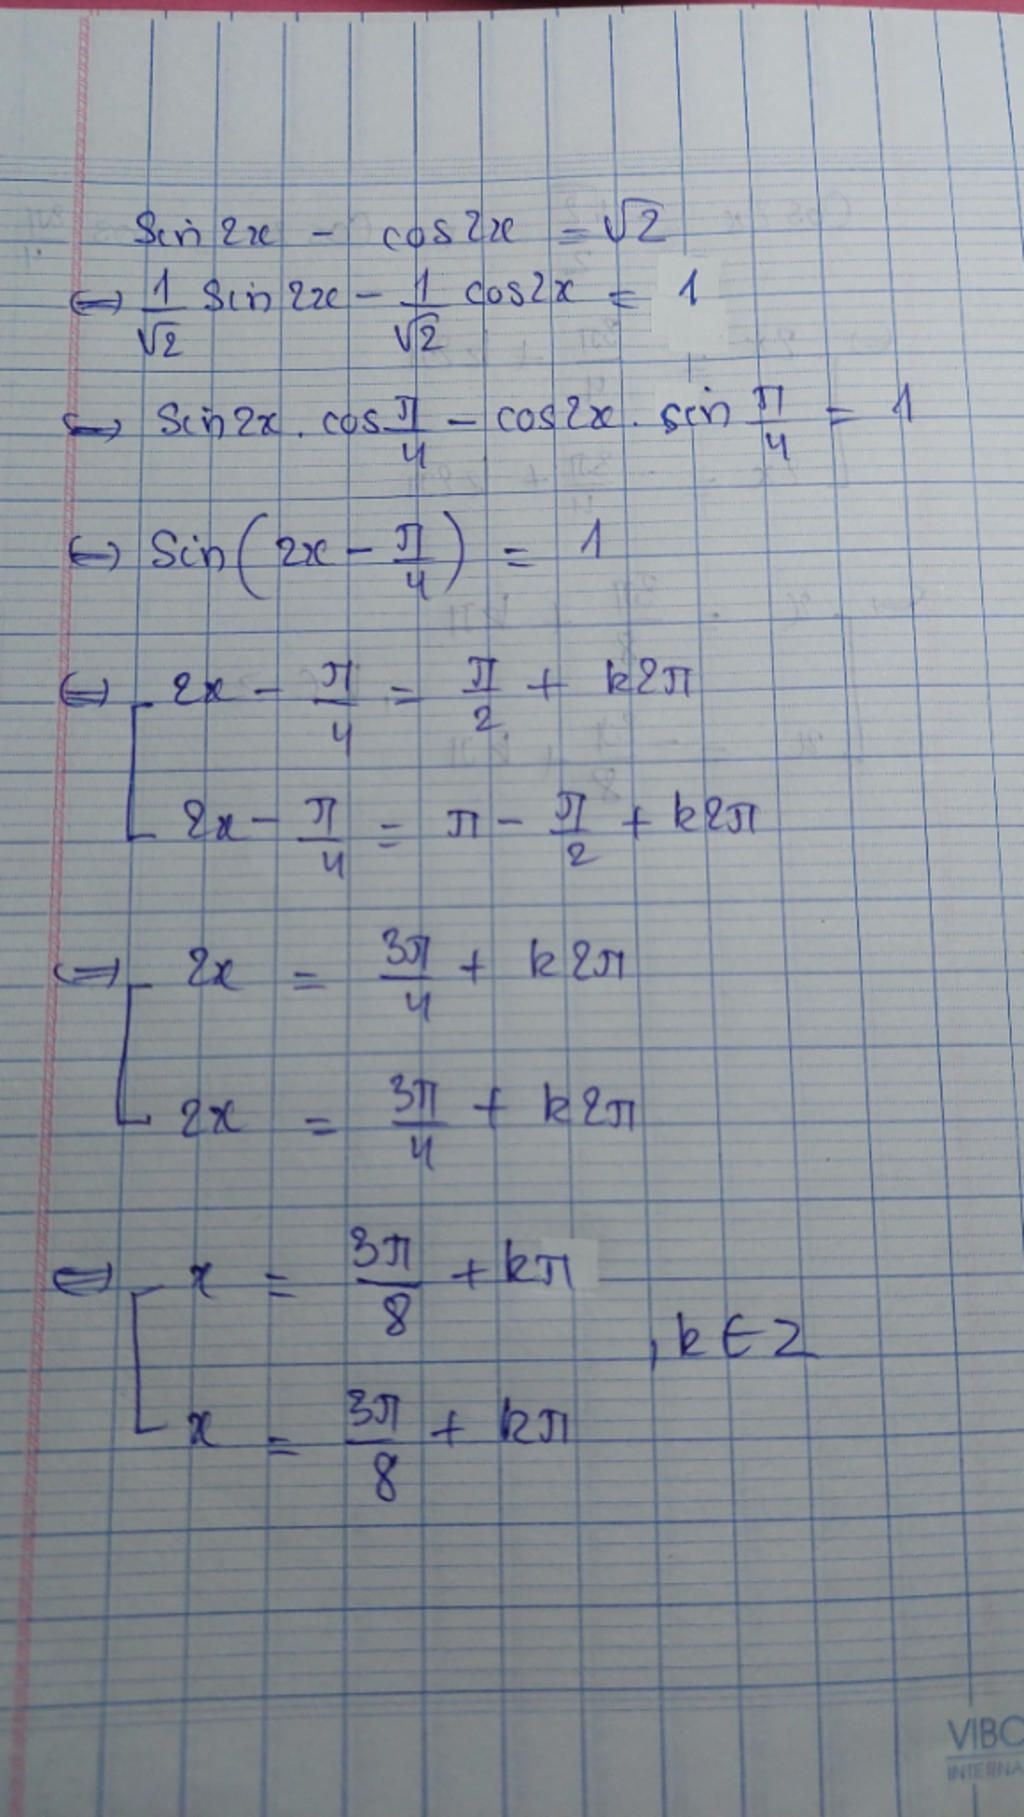 sin 2x - cos 2x = √2
⇔ 1/√2 sin 2x - 1/√2 cos 2x = 1
⇔ sin 2x . cos π/4 - cos 2x . sin π/4 = 1
⇔ sin(2x - π/4) = 1
⇔ [ 2x - π/4 = π/2 + k2π
2x - π/4 = π - π/2 + k2π
⇔ [ 2x = 3π/4 + k2π
2x = 3π/4 + k2π
⇔ [ x = 3π/8 + kπ
, k ∈ Z
x = 3π/8 + kπ
VIBO
INTERNA